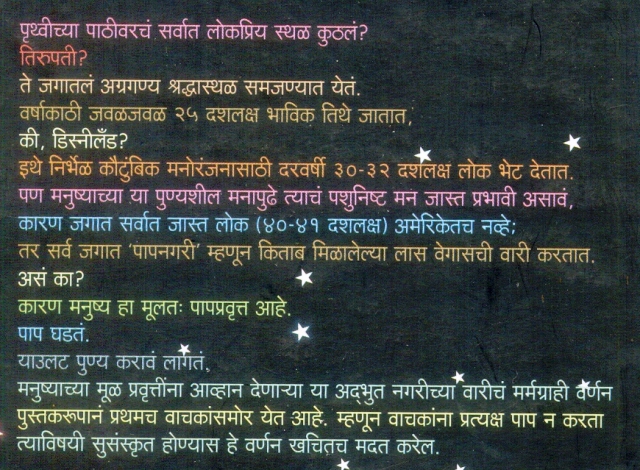 पृथ्वीच्या पाठीवरचं सर्वात लोकप्रिय स्थळ कुठलं?
तिरुपती?
ते जगातलं अग्रगण्य श्रद्धास्थळ समजण्यात येतं.
वर्षाकाठी जवळजवळ २५ दशलक्ष भाविक तिथे जातात,
की, डिस्नीलँड?
इथे निर्भेळ कौटुंबिक मनोरंजनासाठी दरवर्षी ३०-३२ दशलक्ष लोक भेट देतात.
पण मनुष्याच्या या पुण्यशील मनापुढे त्याचं पशुनिष्ट मन जास्त प्रभावी असावं,
कारण जगात सर्वात जास्त लोक (४०-४१ दशलक्ष) अमेरिकेतच नव्हे;
तर सर्व जगात 'पापनगरी' म्हणून किताब मिळालेल्या लास वेगासची वारी करतात.
असं का?
कारण मनुष्य हा मूलतः पापप्रवृत्त आहे.
पाप घडतं.
याउलट पुण्य करावं लागतं,
मनुष्याच्या मूळ प्रवृत्तींना आव्हान देणाऱ्या या अद्‌भुत नगरीच्या वारीचं मर्मग्राही वर्णन
पुस्तकरूपानं प्रथमच वाचकांसमोर येत आहे. म्हणून वाचकांना प्रत्यक्ष पाप न करता
त्याविषयी सुसंस्कृत होण्यास हे वर्णन खचितच मदत करेल.